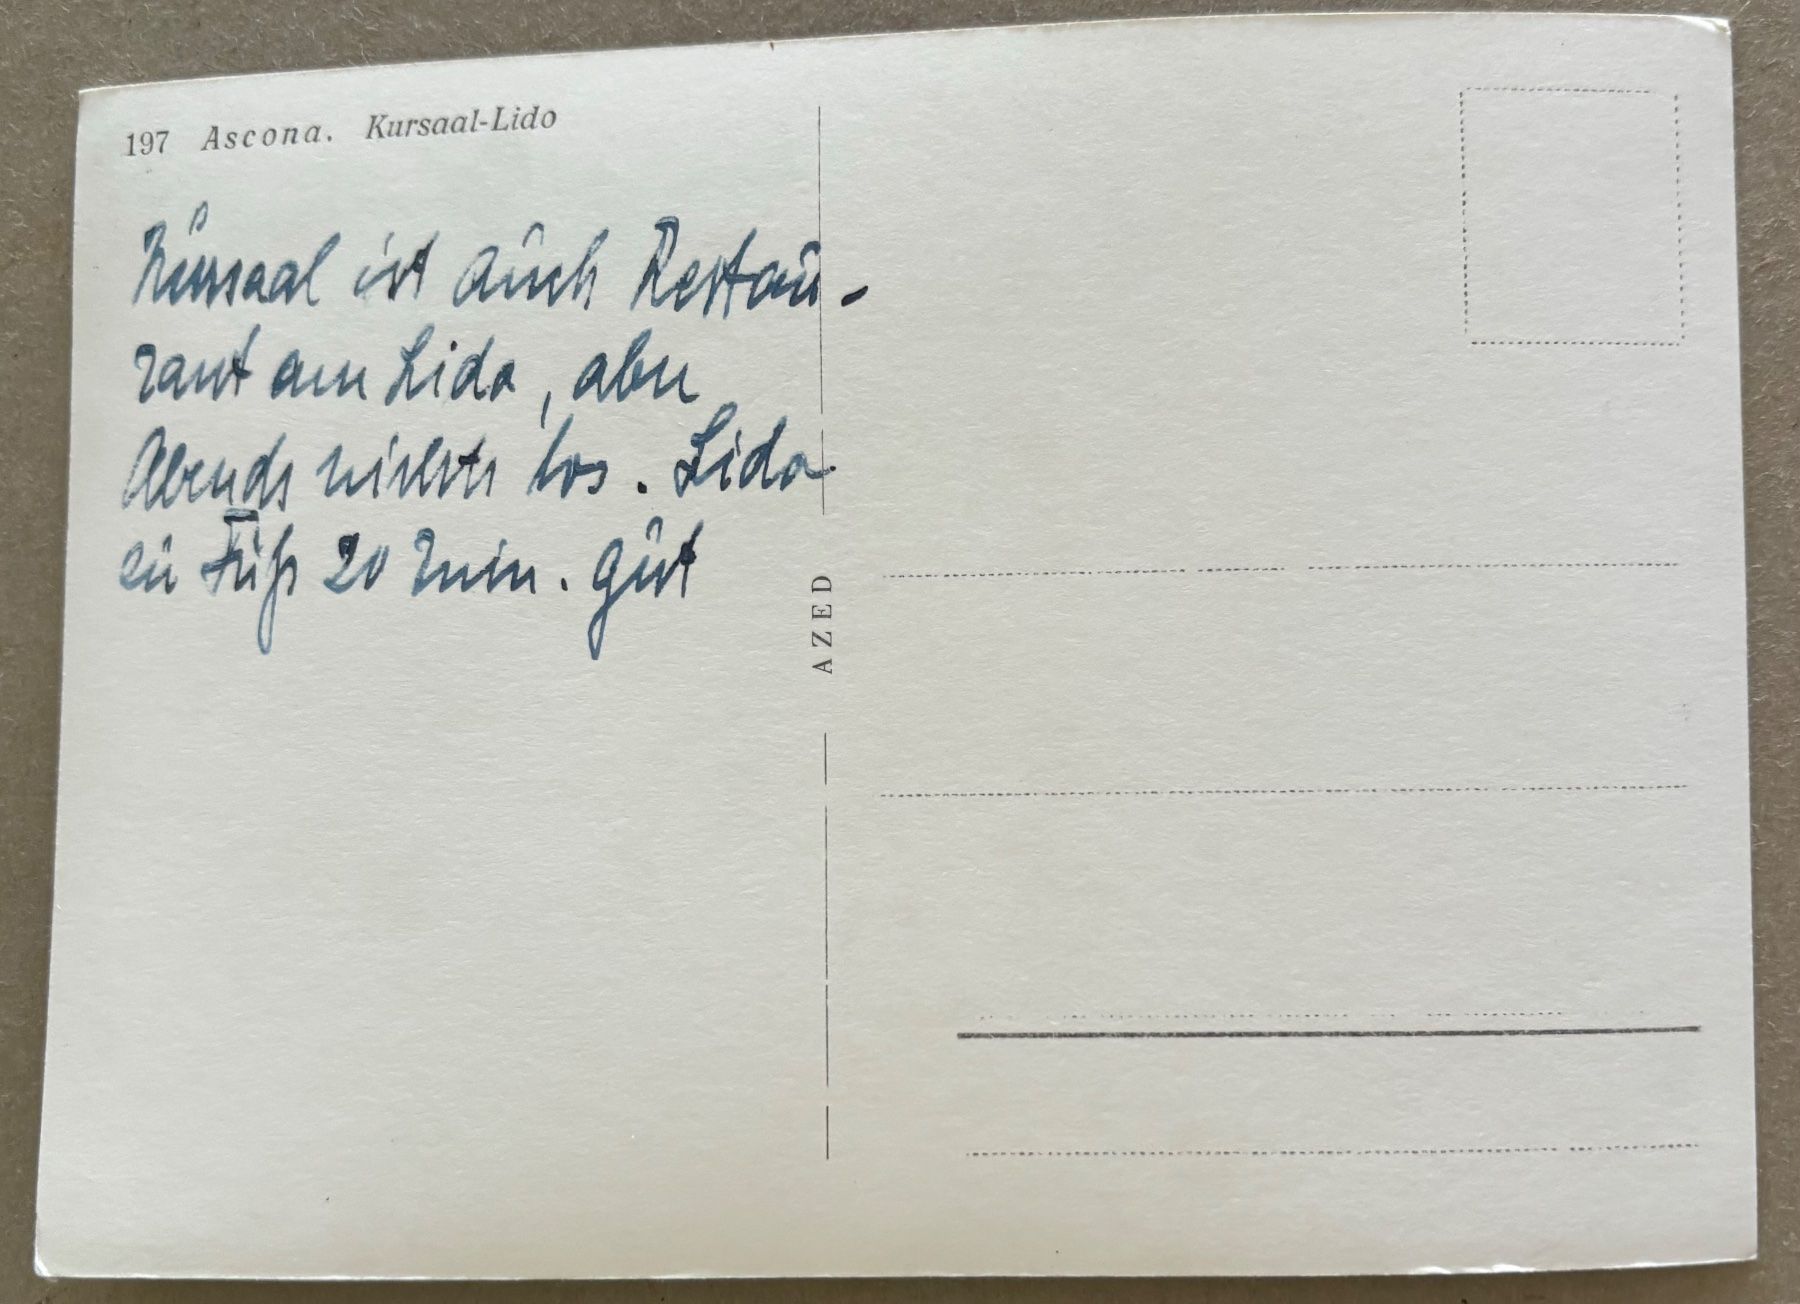 197 Ascona. Kursaal-Lido
Kursaal ist auch Restau-
rant am Lido, aber
Abends nichts los. Lido
zu Fuß 20 min. gut
AZED